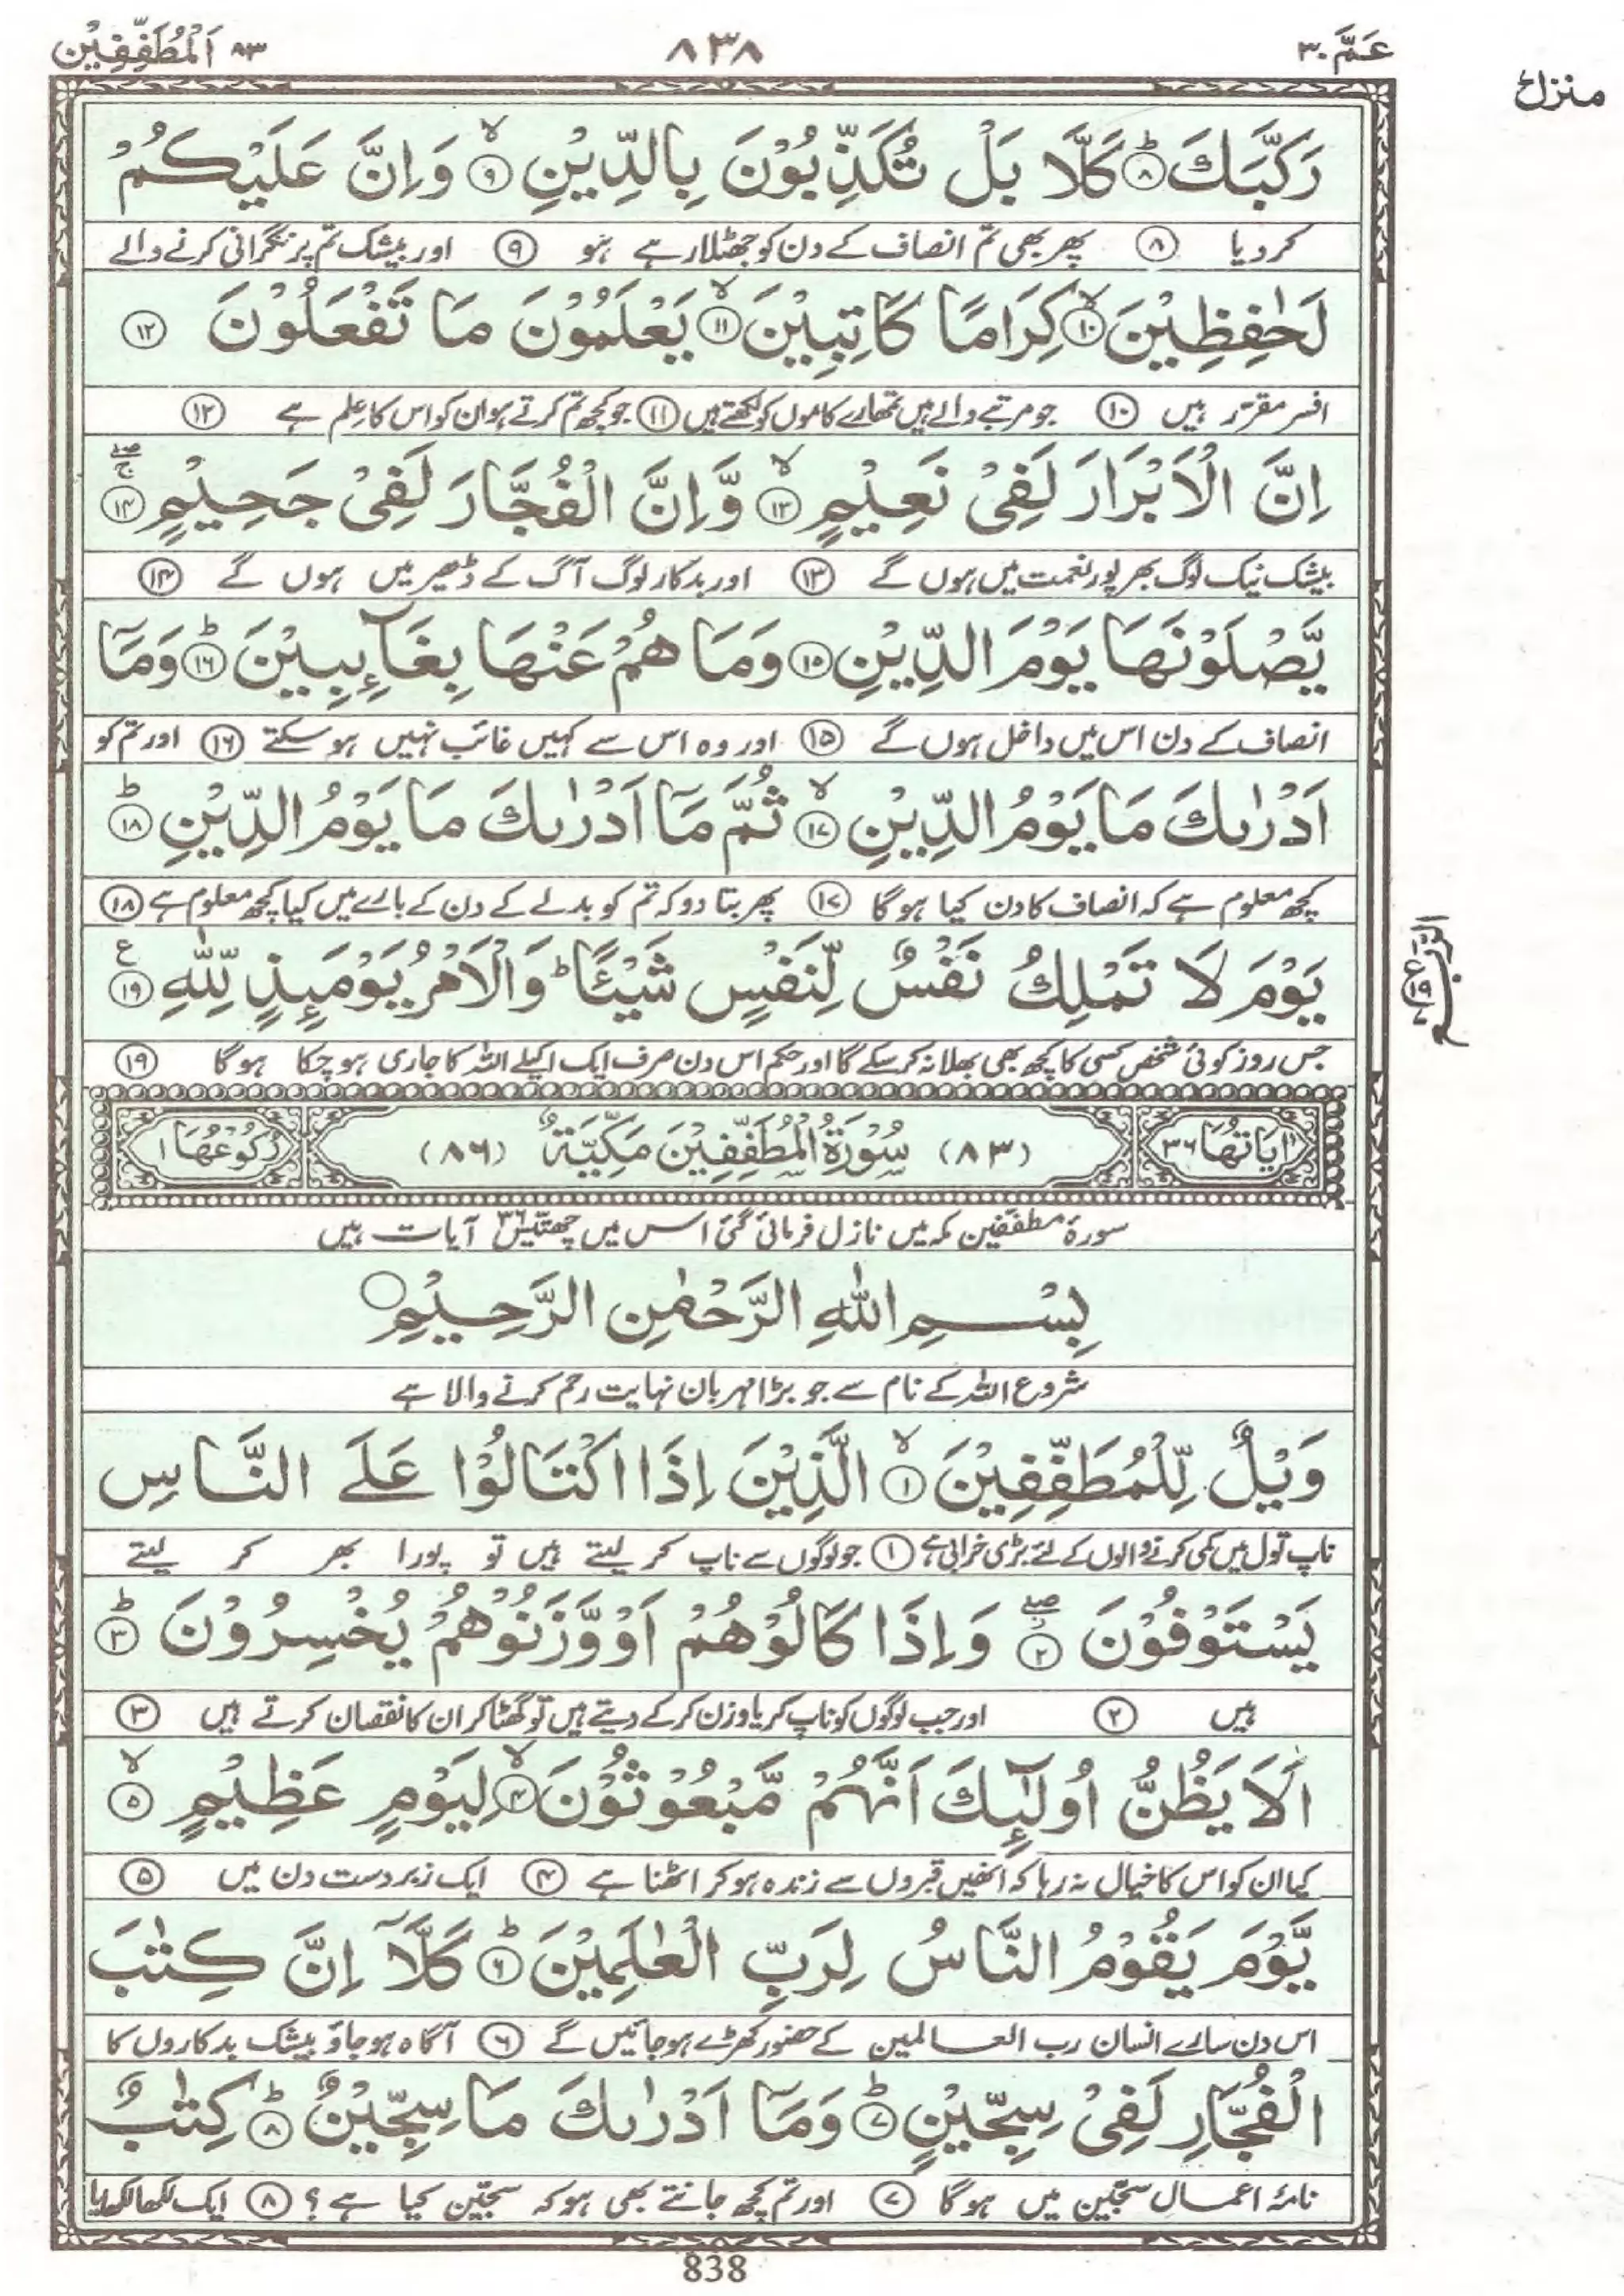 عَمَّ ٣٠
٨٣٨
اَلْمُطَفِّفِيْن ٨٣
منزل
رَكَّبَكَ ؕ ⑧ كَلَّا بَلْ تُكَذِّبُوْنَ بِالدِّيْنِ ۙ ⑨ وَاِنَّ عَلَيْكُمْ
کردیا ⑧ پھر بھی تم انصاف کے دن کو جھٹلا رہے ہو ⑨ اور بیشک تم پر نگرانی کرنے والے
لَحٰفِظِيْنَ ۙ ⑩ كِرَامًا كَاتِبِيْنَ ۙ ⑪ يَعْلَمُوْنَ مَا تَفْعَلُوْنَ ⑫
افسر مقرر ہیں ⑩ جو مرتبے والے ہیں تمھارے کاموں کو لکھتے ہیں ⑪ جو کچھ تم کرتے ہو ان کو اس کا علم ہے ⑫
اِنَّ الْاَبْرَارَ لَفِيْ نَعِيْمٍ ۙ ⑬ وَّاِنَّ الْفُجَّارَ لَفِيْ جَحِيْمٍ ⑭
بیشک نیک لوگ بھرپور نعمت میں ہوں گے ⑬ اور بدکار لوگ آگ کے ڈھیر میں ہوں گے ⑭
يَّصْلَوْنَهَا يَوْمَ الدِّيْنِ ⑮ وَمَا هُمْ عَنْهَا بِغَآىِٕبِيْنَ ؕ ⑯ وَمَآ
انصاف کے دن اس میں داخل ہوں گے ⑮ اور وہ اس سے کہیں غائب نہیں ہو سکتے ⑯ اور تم کو
اَدْرٰىكَ مَا يَوْمُ الدِّيْنِ ۙ ⑰ ثُمَّ مَآ اَدْرٰىكَ مَا يَوْمُ الدِّيْنِ ؕ ⑱
کچھ معلوم ہے کہ انصاف کا دن کیا ہوگا ⑰ پھر بتا دو کہ تم کو بدلے کے دن کے بارے میں کیا کچھ معلوم ہے ⑱
يَوْمَ لَا تَمْلِكُ نَفْسٌ لِّنَفْسٍ شَيْـًٔا ؕ وَالْاَمْرُ يَوْمَىِٕذٍ لِّلّٰهِ ⑲ ع
جس روز کوئی شخص کسی کا کچھ بھی بھلا نہ کرسکے گا اور حکم اس دن صرف ایک اکیلے اللہ کا جاری ہو چکا ہوگا ⑲
اٰيَاتُهَا ٣٦ (٨٣) سُوْرَةُ الْمُطَفِّفِيْنَ مَكِّيَّةٌ (٨٦) رُكُوْعُهَا ١
سورۂ مطففین مکہ میں نازل فرمائی گئی اس میں چھتیس ٣٦ آیات ہیں
بِسْمِ اللّٰهِ الرَّحْمٰنِ الرَّحِيْمِ
شروع اللہ کے نام سے جو بڑا مہربان نہایت رحم کرنے والا ہے
وَيْلٌ لِّلْمُطَفِّفِيْنَ ۙ ① الَّذِيْنَ اِذَا اكْتَالُوْا عَلَى النَّاسِ
ناپ تول میں کمی کرنے والوں کے لئے بڑی خرابی ہے ① جو لوگوں سے ناپ کر لیتے ہیں تو پورا بھر کر لیتے
يَسْتَوْفُوْنَ ② وَاِذَا كَالُوْهُمْ اَوْ وَّزَنُوْهُمْ يُخْسِرُوْنَ ؕ ③
ہیں ② اور جب لوگوں کو ناپ کر یا وزن کرکے دیتے ہیں تو گھٹا کر ان کا نقصان کرتے ہیں ③
اَلَا يَظُنُّ اُولٰٓىِٕكَ اَنَّهُمْ مَّبْعُوْثُوْنَ ۙ ④ لِيَوْمٍ عَظِيْمٍ ۙ ⑤
کیا ان کو اس کا خیال نہ رہا کہ انھیں قبروں سے زندہ ہو کر اٹھنا ہے ④ ایک زبردست دن میں ⑤
يَّوْمَ يَقُوْمُ النَّاسُ لِرَبِّ الْعٰلَمِيْنَ ؕ ⑥ كَلَّآ اِنَّ كِتٰبَ
اس دن سارے انسان رب العالمین کے حضور کھڑے ہو جائیں گے ⑥ آگاہ ہو جاؤ بیشک بدکاروں کا
الْفُجَّارِ لَفِيْ سِجِّيْنٍ ؕ ⑦ وَمَآ اَدْرٰىكَ مَا سِجِّيْنٌ ؕ ⑧ كِتٰبٌ
نامۂ اعمال سجّین میں ہوگا ⑦ اور تم کچھ جانتے بھی ہو کہ سجّین کیا ہے؟ ⑧ ایک لکھا لکھایا
838